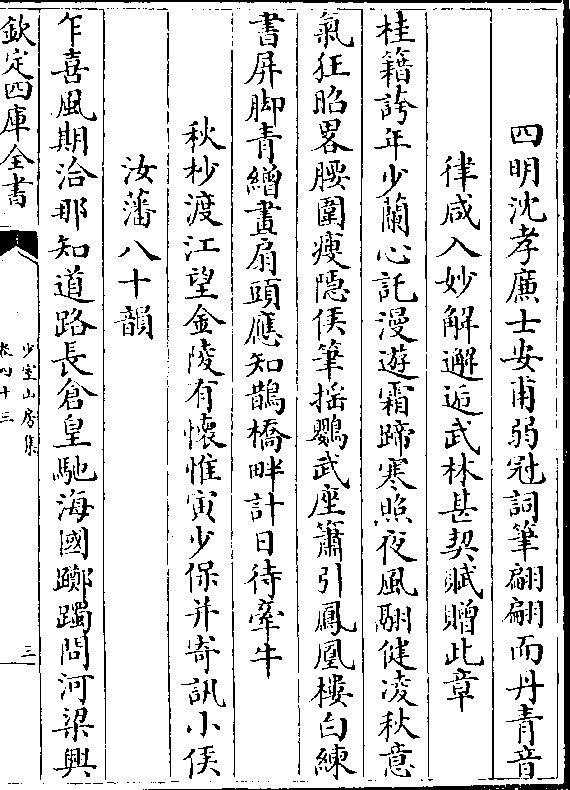 四明沈孝廉士安甫弱冠詞筆翩翩而丹青音
律咸入妙解邂逅武林甚契賦贈此章
桂籍誇年少蘭心託漫遊霜蹄寒照夜風翮健凌秋意
氣狂昭畧腰圍瘦隱侯筆揺鸚武座簫引鳳凰樓白練
書屏脚青繒畫扇頭應知鵲橋畔計日待牽牛
秋杪渡江望金陵有懷惟寅少保并寄訊小侯
汝藩八十韻
乍喜風期洽那知道路長倉皇馳海國躑躅問河梁興
欽定四庫全書
少室山房集
卷四十三
三